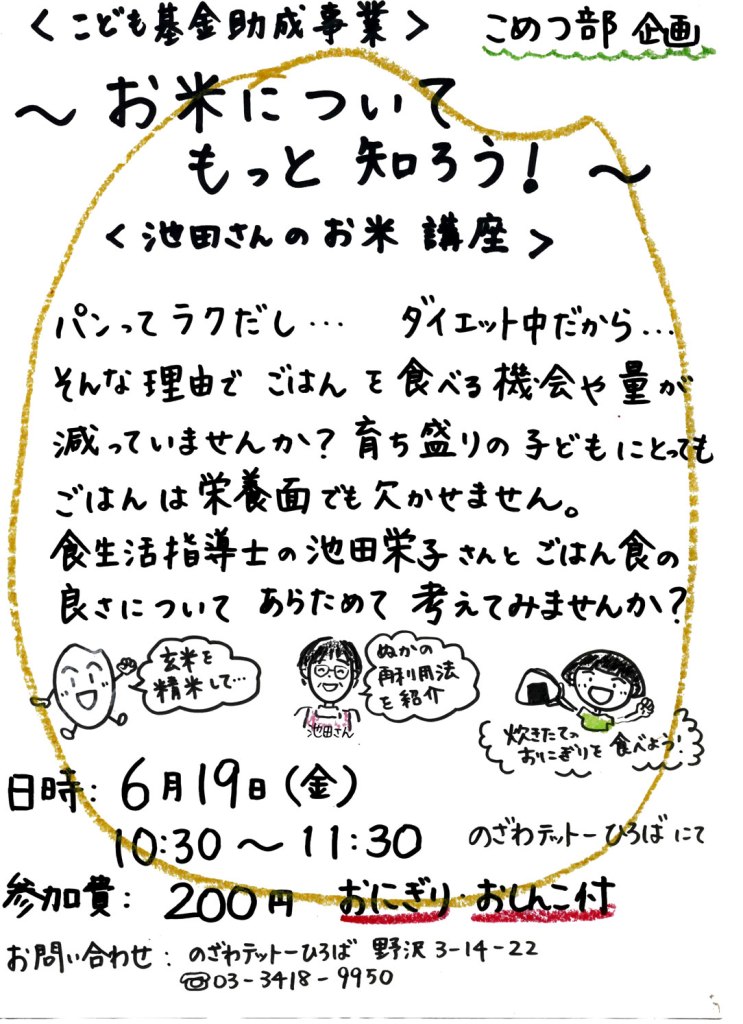 ＜こども基金助成事業＞ こめつ部 企画
～お米について
もっと知ろう！～
＜池田さんのお米 講座＞
パンってラクだし… ダイエット中だから…
そんな理由で ごはんを食べる機会や量が
減っていませんか？育ち盛りの子どもにとっても
ごはんは栄養面でも欠かせません。
食生活指導士の池田栄子さんとごはん食の
良さについて あらためて 考えてみませんか？
玄米を
精米して…
ぬかの
再利用法
を紹介
池田さん
炊きたての
おにぎりを食べよう！
日時：6月19日（金）
10:30～11:30 のざわテットーひろばにて
参加費：200円 おにぎり・おしんこ付
お問い合わせ：のざわテットーひろば 野沢3-14-22
☎03-3418-9950